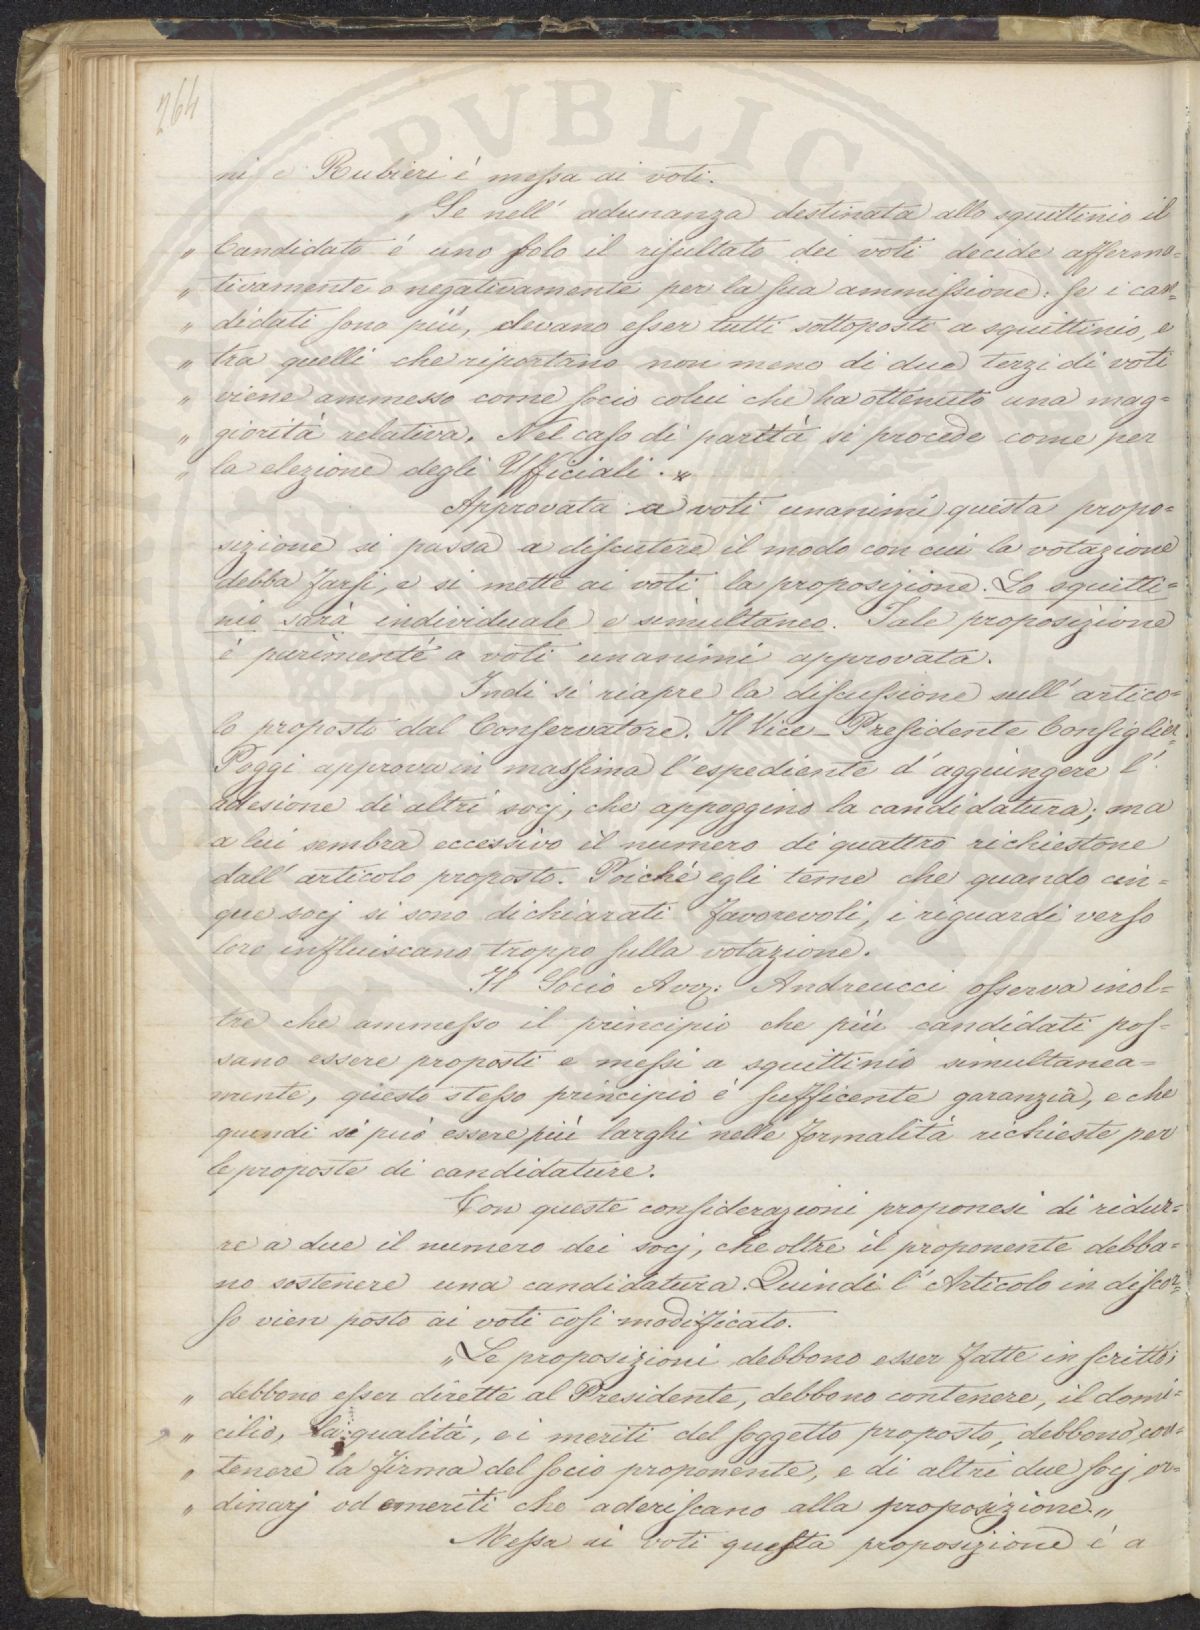 264
ni e Rubieri é messa ai voti.
„Se nell' adunanza destinata allo squittinio il
„ Candidato é uno solo il risultato dei voti decide afferma=
„ tivamente o negativamente per la sua ammissione: se i can=
„ didati sono piú, devano esser tutti sottoposti a squittinio, e
„ tra quelli che riportano non meno di due terzi di voti
„ viene ammesso come socio colui che ha ottenuto una mag=
„ giorità relativa. Nel caso di parità si procede come per
„ la elezione degli Ufficiali. „
Approvata a voti unanimi questa propo=
sizione si passa a discutere il modo con cui la votazione
debba farsi, e si mette ai voti la proposizione. Lo squitti=
nio sarà individuale e simultaneo. Tale proposizione
é parimente a voti unanimi approvata.
Indi si riapre la discussione sull' artico=
lo proposto dal Conservatore. Il Vice-Presidente Consiglier
Poggi approva in massima l'espediente d'aggiungere l'
adesione di altri socj, che appoggino la candidatura; ma
a lui sembra eccessivo il numero di quattro richiestone
dall' articolo proposto. Poiché egli teme che quando cin=
que socj si sono dichiarati favorevoli, i riguardi verso
loro influiscano troppo sulla votazione.
Il Socio Avv: Andreucci osserva inol=
tre che ammesso il principio che piú candidati pos=
sano essere proposti e messi a squittinio simultanea=
mente, questo stesso principio é sufficente garanzia, e che
quindi si può essere piú larghi nelle formalità richieste per
le proposte di candidature.
Con queste considerazioni proponesi di ridur=
re a due il numero dei socj, che oltre il proponente debba=
no sostenere una candidatura. Quindi l' Articolo in discor=
so vien posto ai voti cosi modificato.
„Le proposizioni debbono esser fatte in scritto,
„ debbono esser dirette al Presidente, debbono contenere, il domi=
„ cilio, la qualità, e i meriti del soggetto proposto, debbono con=
„ tenere la firma del socio proponente, e di altri due socj or=
„ dinarj od emeriti che aderiscano alla proposizione „
Messa ai voti questa proposizione é a
PVBLICA